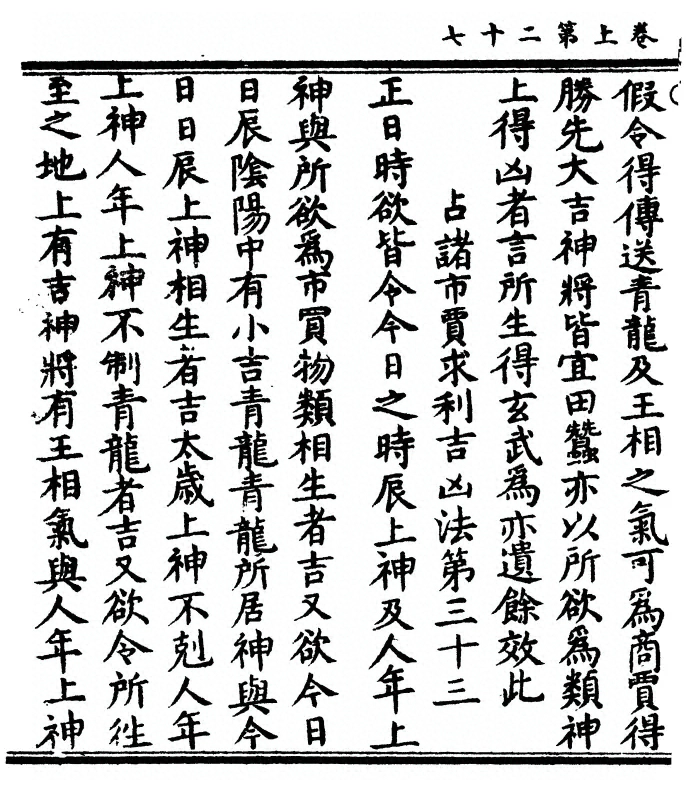 卷上第二十七
假令得傳送青龍及王相之氣可為商賈得
勝先大吉神將皆宜田蠶亦以所欲為類神
上得凶者言所生得玄武為亦遺餘效此
占諸市賈求利吉凶法第三十三
正日時欲皆令今日之時辰上神及人年上
神與所欲為市買物類相生者吉又欲今日
日辰陰陽中有小吉青龍青龍所居神與今
日日辰上神相生者吉太歲上神不剋人年
上神人年上神不制青龍者吉又欲令所徃
至之地上有吉神將有王相氣與人年上神